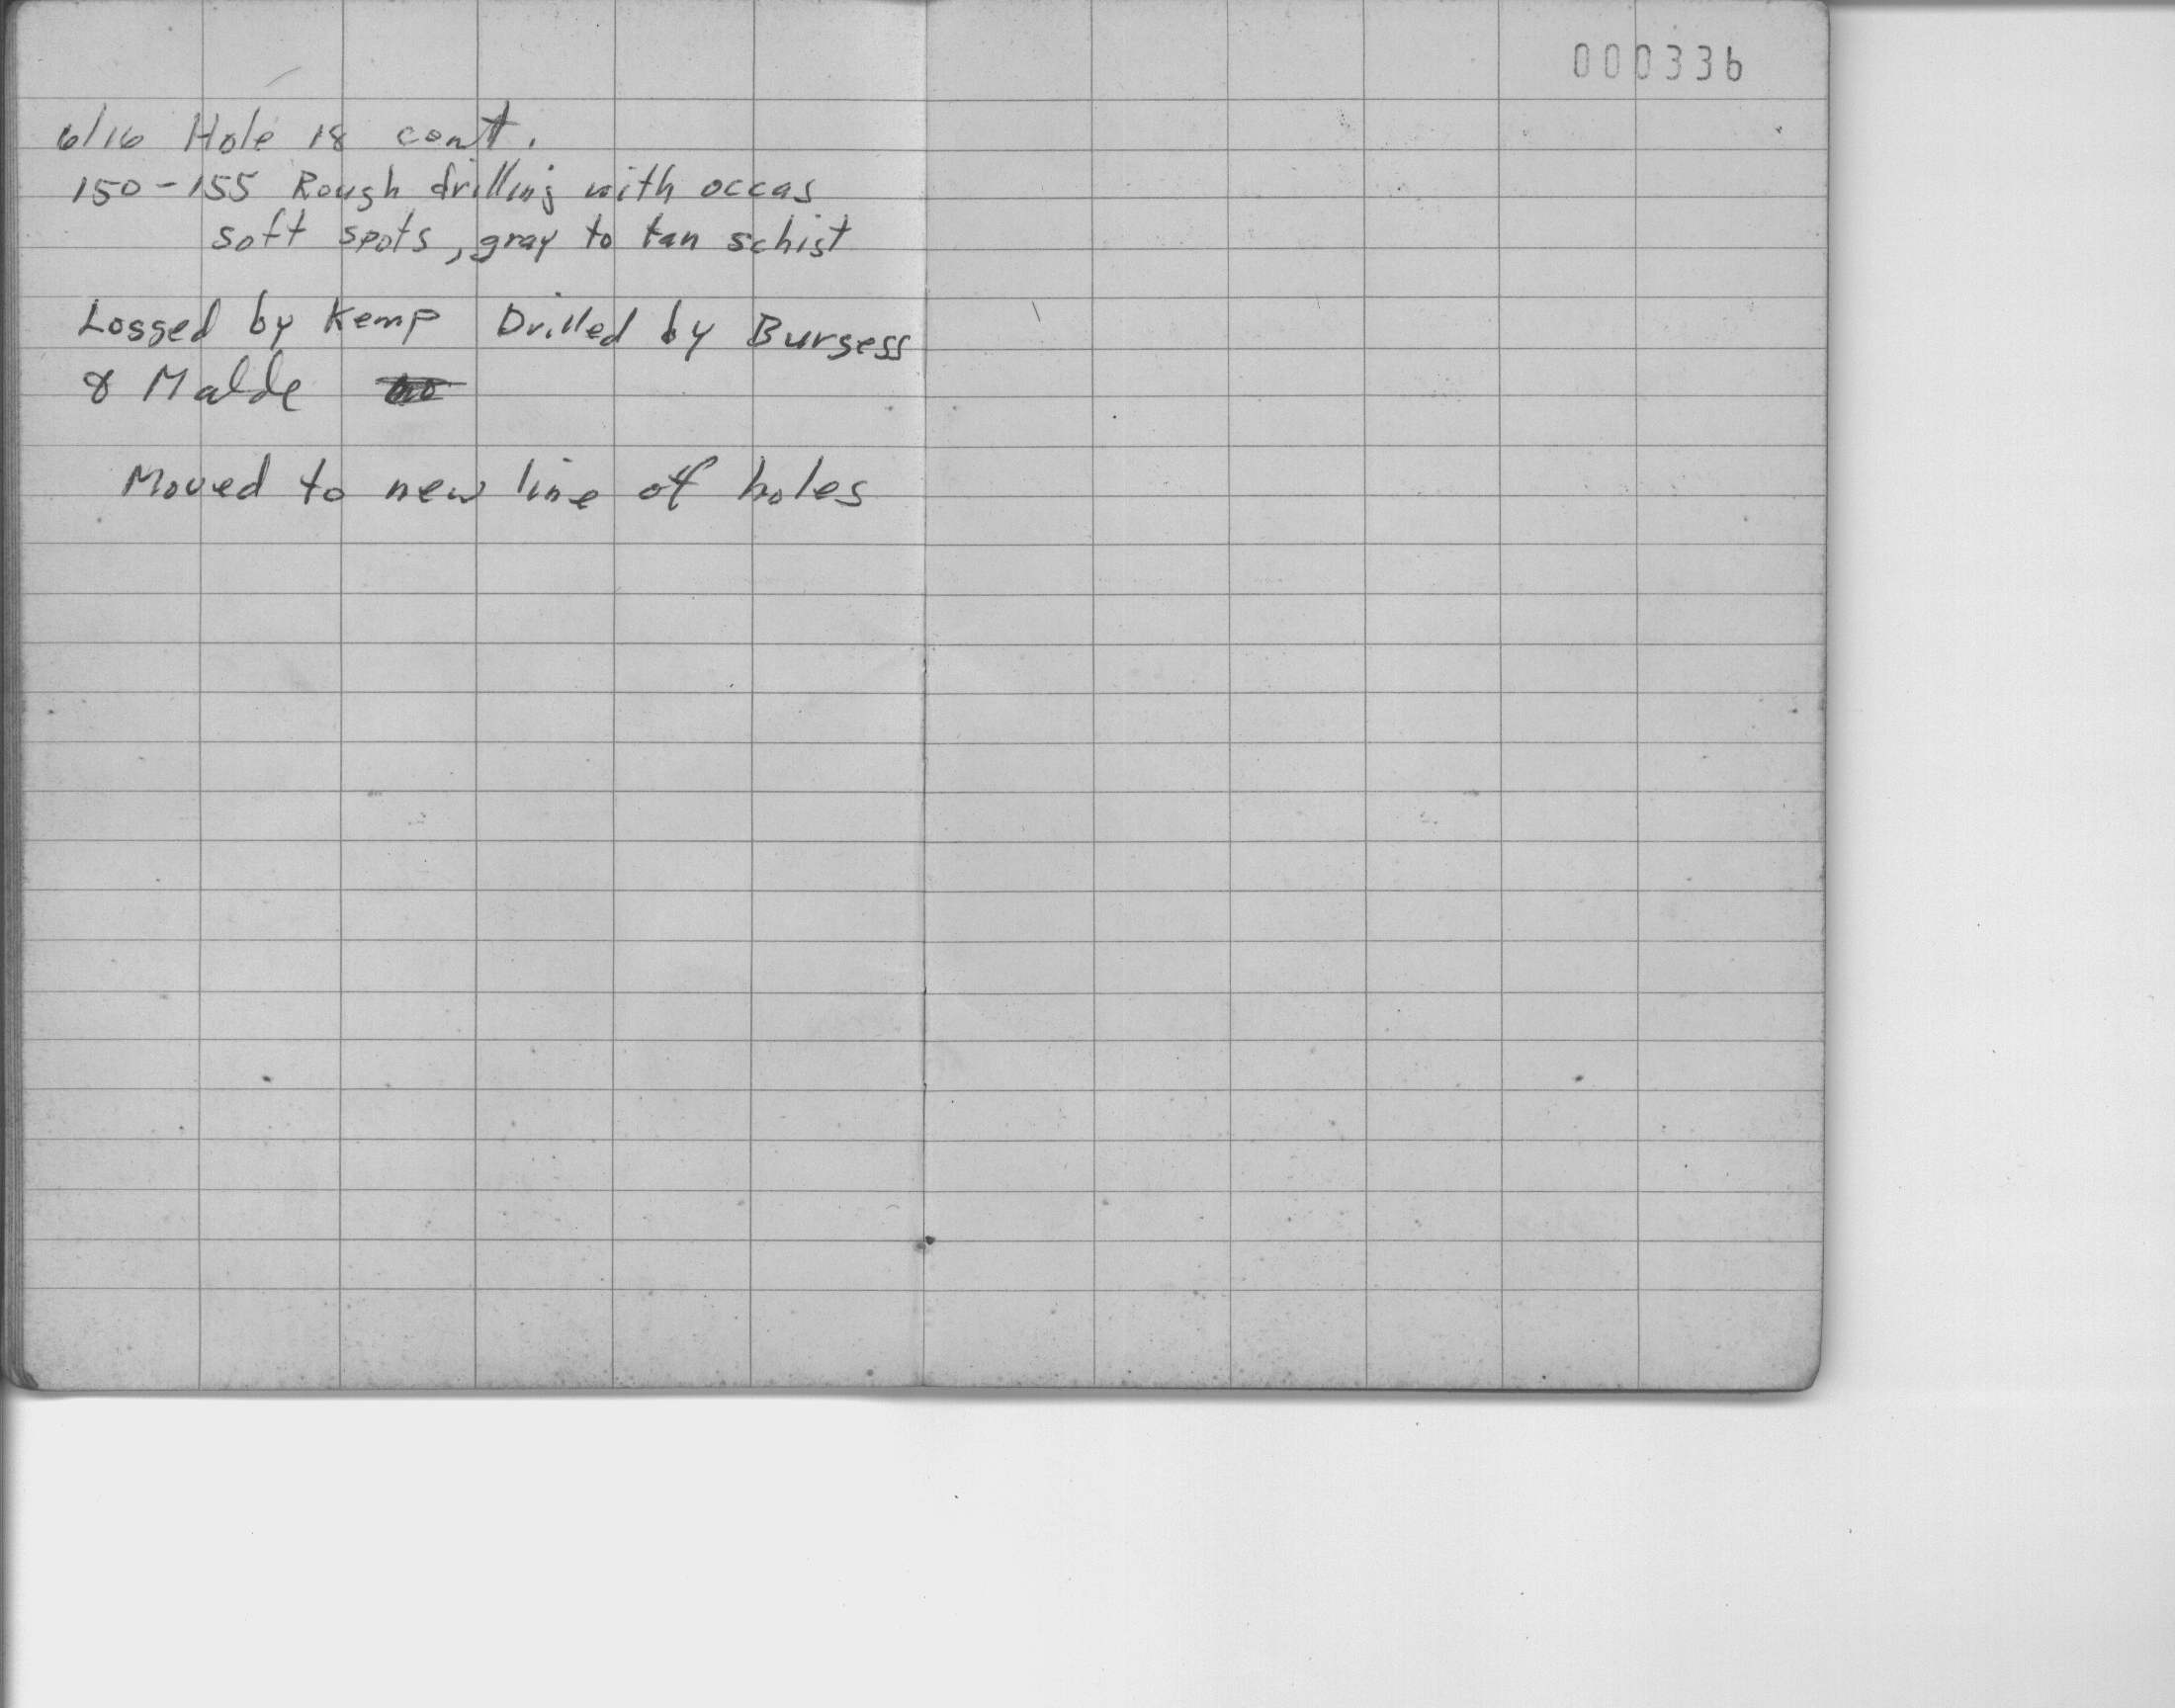 000336
6/16 Hole 18 cont.
150-155 Rough drilling with occas
soft spots, gray to tan schist
Logged by Kemp Drilled by Burgess
& Malde
Moved to new line of holes